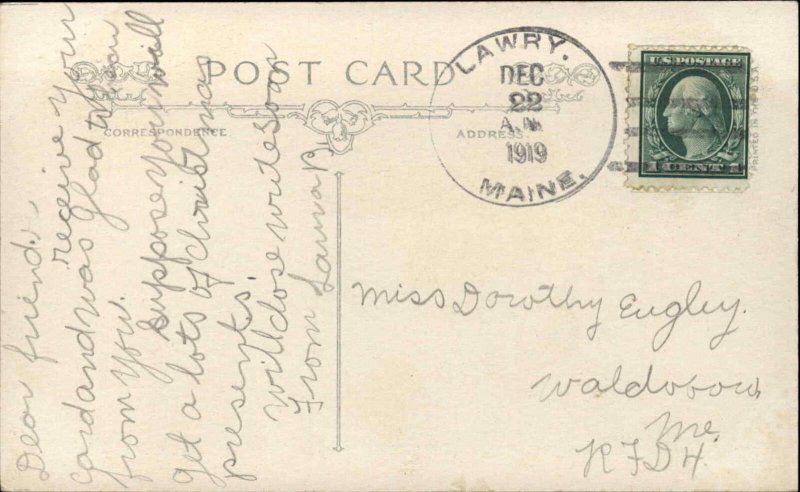 POST CARD
CORRESPONDENCE
ADDRESS
LAWRY.
DEC
22
A.M.
1919
MAINE.
U.S. POSTAGE
1 CENT 1
PRINTED IN THE U.S.A.
Dear friend.
receive your
card and was glad to hear
from you.
suppose you will
get a lots of Christmas
presents.
will close write soon
From Laura B.
Miss Dorothy Eugley.
Waldoboro,
Me.
RFD 4